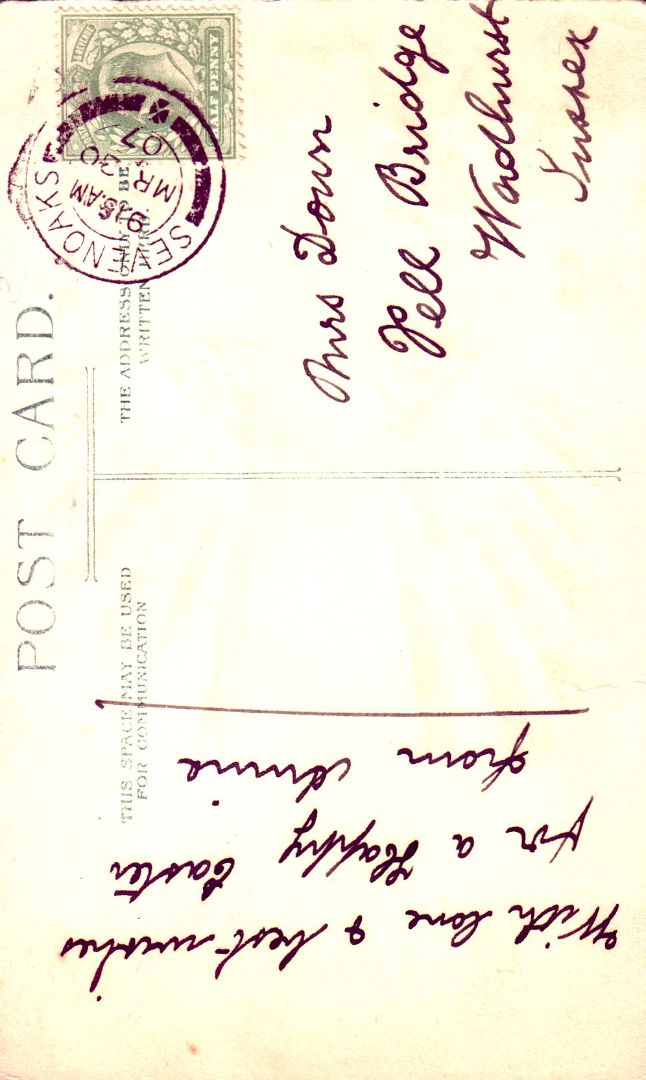 POST CARD.
THIS SPACE MAY BE USED
FOR COMMUNICATION
THE ADDRESS ONLY TO BE
WRITTEN HERE
HALF PENNY
SEVENOAKS
9.15AM
MR 30
07
With love & best wishes
for a Happy Easter
from Annie
Mrs Down
Pell Bridge
Wadhurst
Sussex